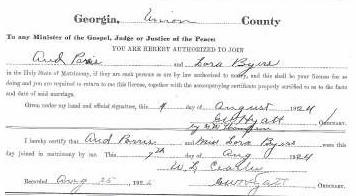 Georgia, Union County
To any Minister of the Gospel, Judge or Justice of the Peace:
YOU ARE HEREBY AUTHORIZED TO JOIN
Aud Parris and Lora Byers
in the Holy State of Matrimony, if they are such persons as are by law authorized to marry, and this shall be your license for so
doing and you are required to return to me this license, together with the accompanying certificate properly certified to as to the fact
and date of said marriage.
Given under my hand and official signature, this 9 day of August 1924
G W Hyatt
ORDINARY.
I hereby certify that Aud Parris and Miss Lora Byers were this
day joined in matrimony by me. This 9th day of Aug 1924
W. L.
Recorded Aug 25, 192 G W Hyatt ORDINARY.